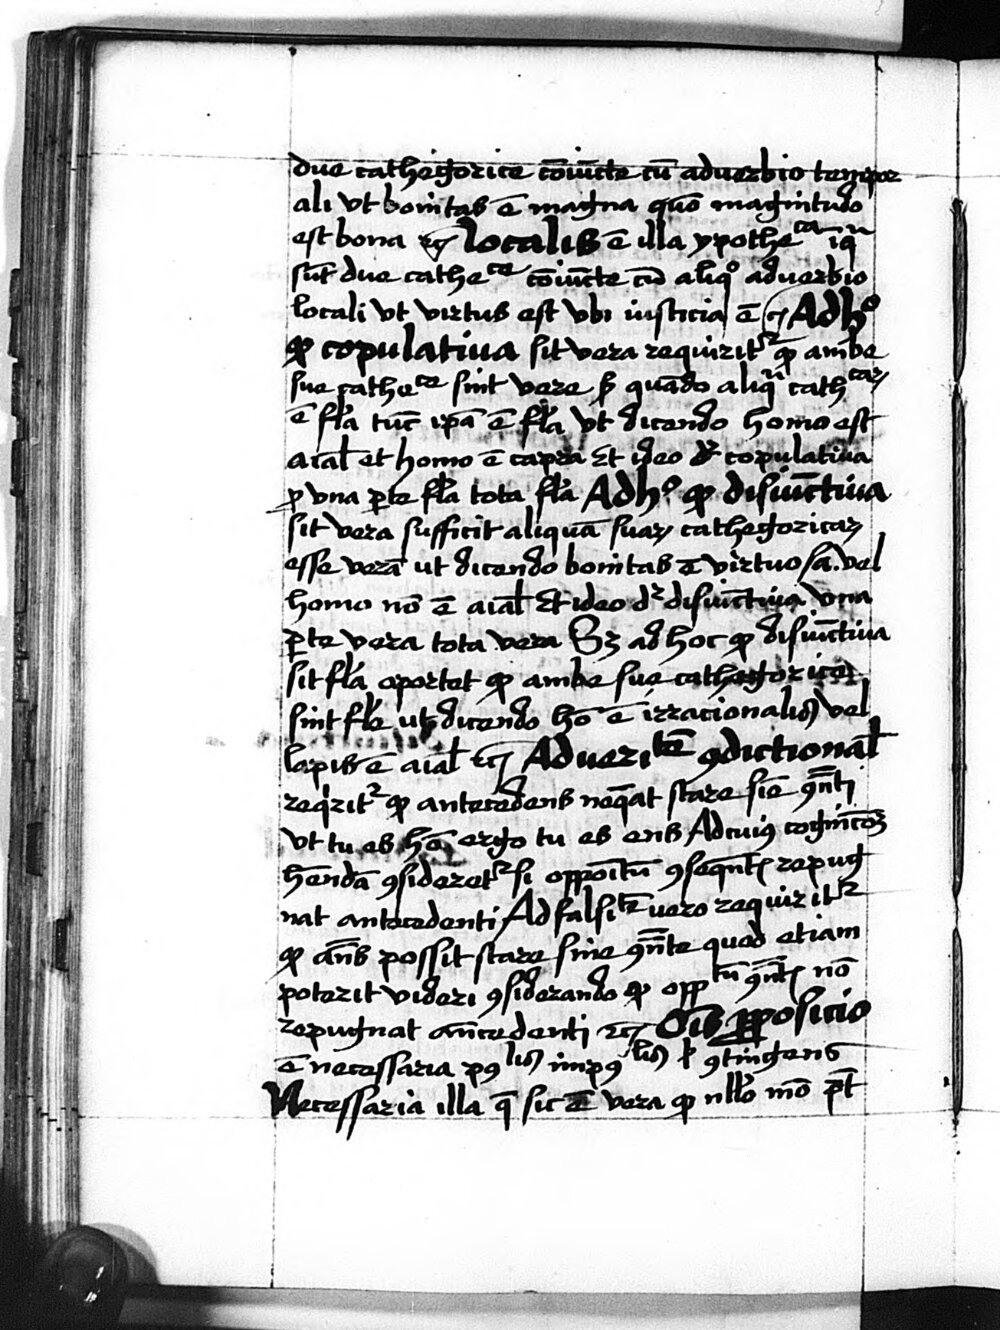 due cathegorice cōiūcte cū aduerbio tempor
ali vt bonitas ē magna quō magnitudo
est bona ⁊c̄ localis ē illa ypotheᶜᵃ ī qᵃ
sūt due catheᶜᵉ cōiūcte cū aliqº aduerbio
locali vt virtus est vbi iusticia ē ⁊c̄ Ad hº
ꝙ copulatiua sit vera requiritᵘʳ ꝙ ambe
sue catheᶜᵉ sint vere sꝫ quādo aliqᵃ cathᶜᵃꝝ
ē fl̄a tūc ip̄a ē fl̄a vt dicendo homo est
aial̄ et homo ē capra Et ideo dʳ copulatiua
ꝓ vna ꝑte fl̄a tota fl̄a Ad hº ꝙ disiūctiua
sit vera sufficit aliquā suaꝝ cathegoricaꝝ
esse verā ut dicendo bonitas ē virtuosa. vel
homo nō ē aial̄ Et ideo dʳ disiūctiua vna
ꝑte vera tota vera Sꝫ ad hoc ꝙ disiūctiua
sit fl̄a oportet ꝙ ambe sue cathegorice
sint fl̄e ut dicendo hō ē irracionalis vel
lapis ē aial̄ ⁊c̄ Ad ueriᵗᵉ̄ ꝯdictional̄
reqꝛitᵘʳ ꝙ antecedens neq̄at stare sīe ꝯn̄ti
vt tu es hō ergo tu es ens Ad cuiꝰ cognic̄oꝫ
hēndā ꝯsideretᵘʳ si oppoītū ꝯseqn̄tis repug
nat antecedenti Ad falsiᵗᵉ̄ uero requiritᵘʳ
ꝙ an̄s possit stare sine ꝯn̄te quod etiam
poterit videri ꝯsiderando ꝙ oppᵗū ꝯn̄tis nō
repugnat an̄cedenti ⁊c̄ Oīs ꝓposicio
ē necessaria poꝰˡⁱˢ impoꝰˡⁱˢ l̄ ꝯtingens
Necessaria illa q̄ sic ē vera ꝙ nll̄o mō pt̄